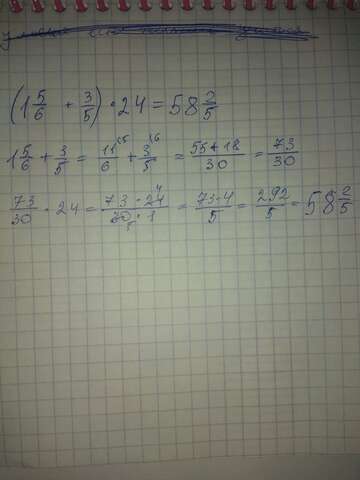 (1 5/6 + 3/5) · 24 = 58 2/5
1 5/6 + 3/5 = 11/6 + 3/5 = 55+18/30 = 73/30
73/30 · 24 = 73 · 24/30 · 1 = 73·4/5 = 292/5 = 58 2/5